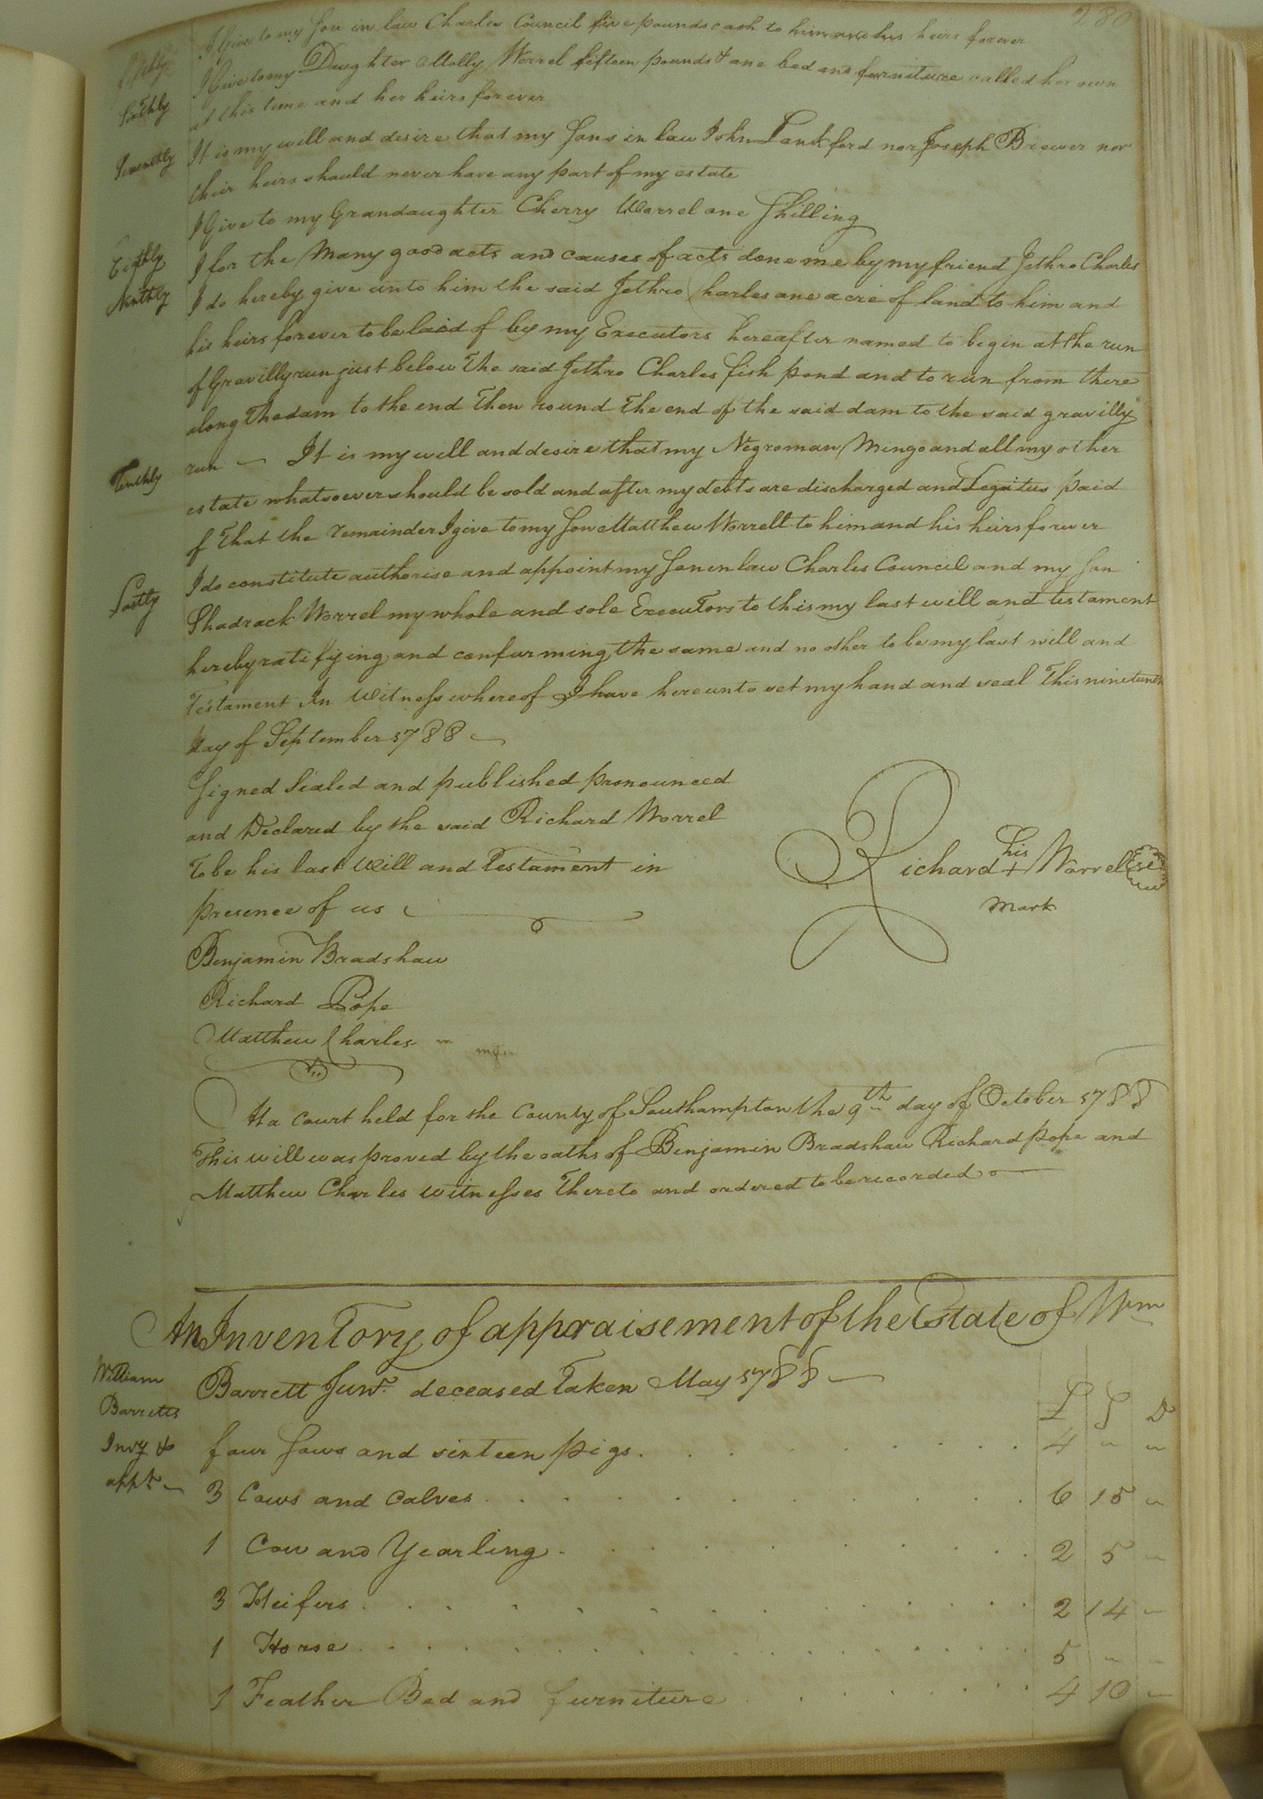 280
Fifthly I Give to my Son in law Charles Council five pounds cash to him and his heirs forever
Sixthly I Give to my Daughter Molly Worrel fifteen pounds & one bed and furniture called her own
at this time and her heirs forever
Seventhly It is my will and desire that my Sons in law John Lankford nor Joseph Brewer nor
their heirs should never have any part of my estate
Eigthly I Give to my Grandaughter Cherry Worrel one Shilling
Ninthly I for the Many good acts and causes of acts done me by my friend Jethro Charles
I do hereby give unto him the said Jethro Charles one acre of land to him and
his heirs forever to be laid of by my Executors hereafter named to begin at the run
of Gravilly run just below the said Jethro Charles fish pond and to run from there
along the dam to the end then round the end of the said dam to the said gravilly
Tenthly run — It is my will and desire that my Negroman Mingo and all my other
estate whatsoever should be sold and after my debts are discharged and Legaties paid
of that the remainder I give to my Son Matthew Worrell to him and his heirs forever
Lastly I do constitute authorise and appoint my Son in law Charles Council and my Son
Shadrack Worrel my whole and sole Executors to this my last will and testament
hereby ratifying and confurming the same and no other to be my last will and
Testament In Witness whereof I have hereunto set my hand and seal this ninetenth
day of September 1788 —
Signed Sealed and published pronounced
and Declared by the said Richard Worrel
To be his last Will and Testament in
presence of us
Richard his + Worrel Seal
mark
Benjamin Bradshaw
Richard Pope
Matthew Charles
At a Court held for the County of Southampton the 9th day of October 1788
This will was proved by the oaths of Benjamin Bradshaw Richard Pope and
Matthew Charles witnesses thereto and ordered to be recorded
An Inventory of appraisement of the Estate of Wm
William
Barretts
Invy &
appt
Barrett Junr. deceased Taken May 1788 —
£ S D
four Sows and sixteen pigs . . . 4 " "
3 Cows and Calves . . . 6 15 "
1 Cow and Yearling . . . 2 5 "
3 Heifers . . . 2 14 "
1 Horse . . . 5 " "
1 Feather Bed and furniture . . . 4 10 "